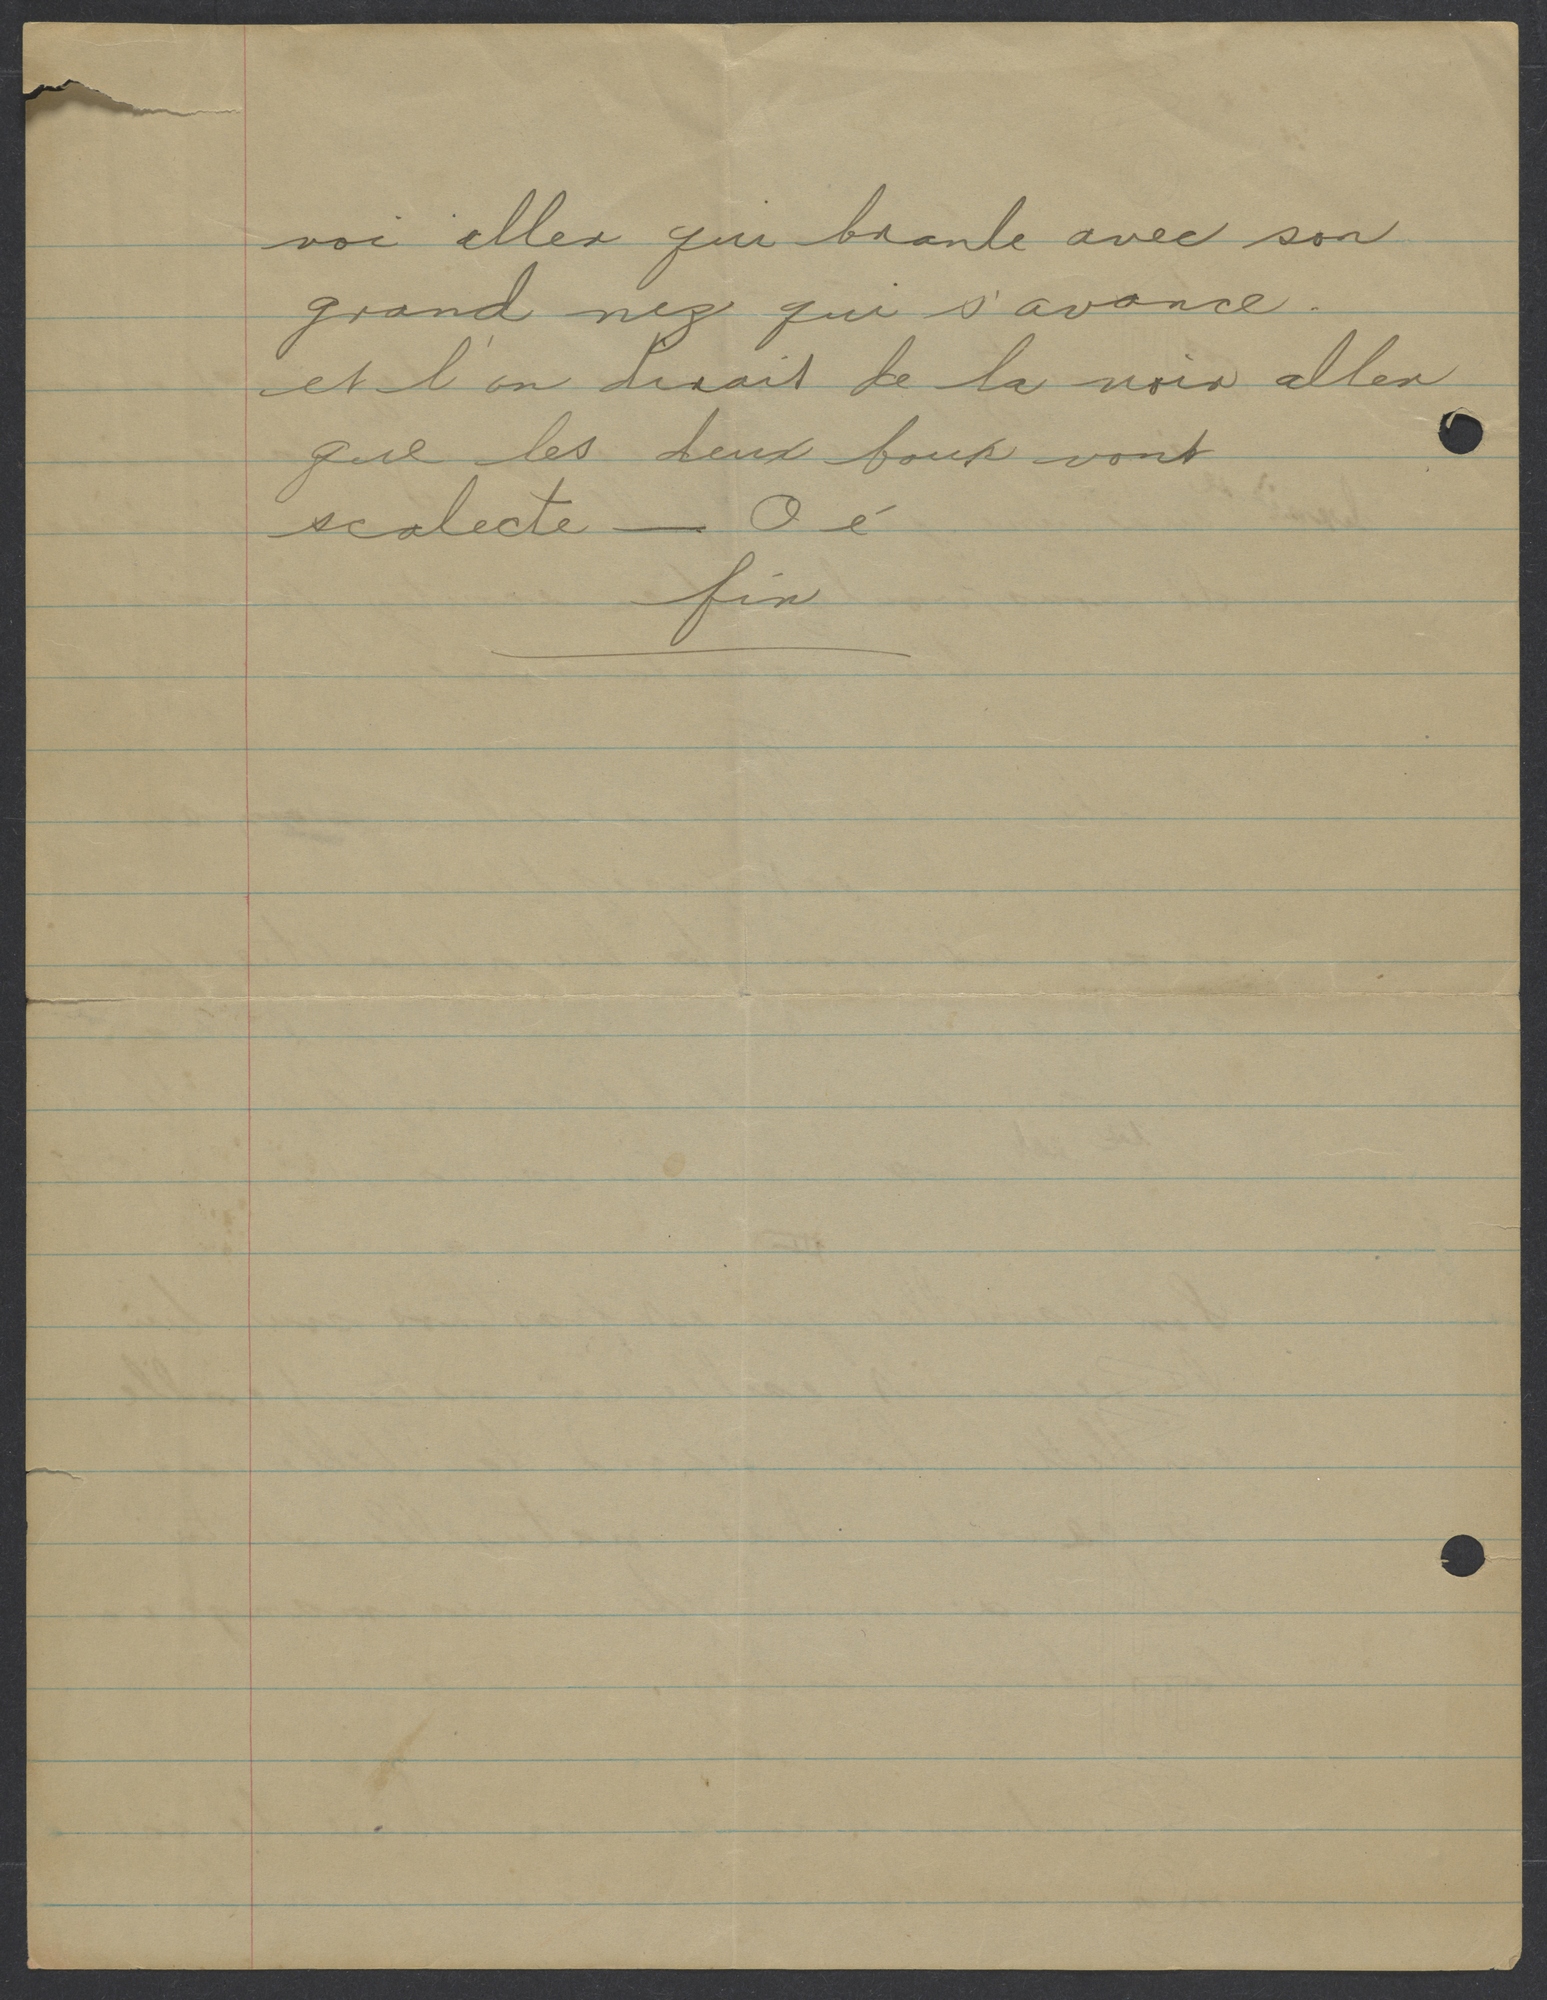 voi aller qui branle avec son
grand nez qui s'avance.
et l'on dirait de la voir aller
que les deux bouts vont
scalecte — O é
fin